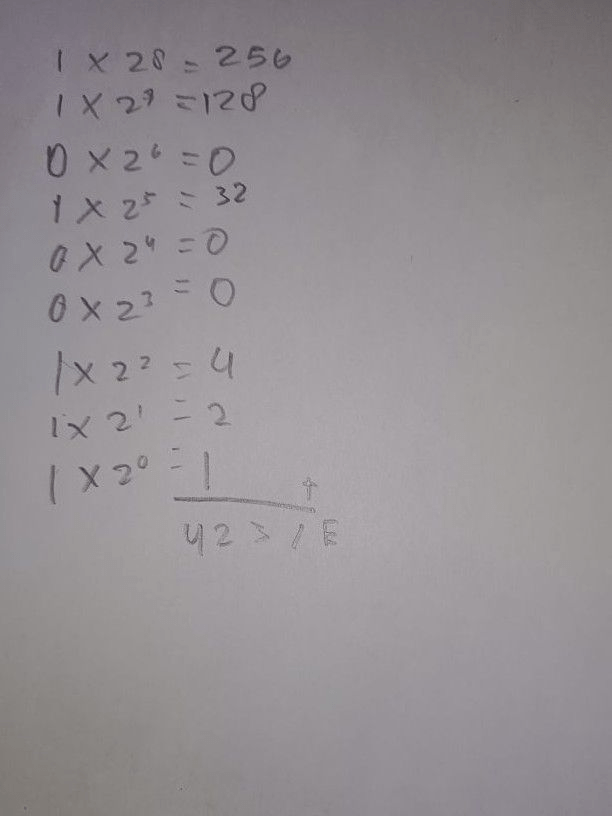 1 × 2⁸ = 256
1 × 2⁷ = 128
0 × 2⁶ = 0
1 × 2⁵ = 32
0 × 2⁴ = 0
0 × 2³ = 0
1 × 2² = 4
1 × 2¹ = 2
1 × 2⁰ = 1 +
423 / E